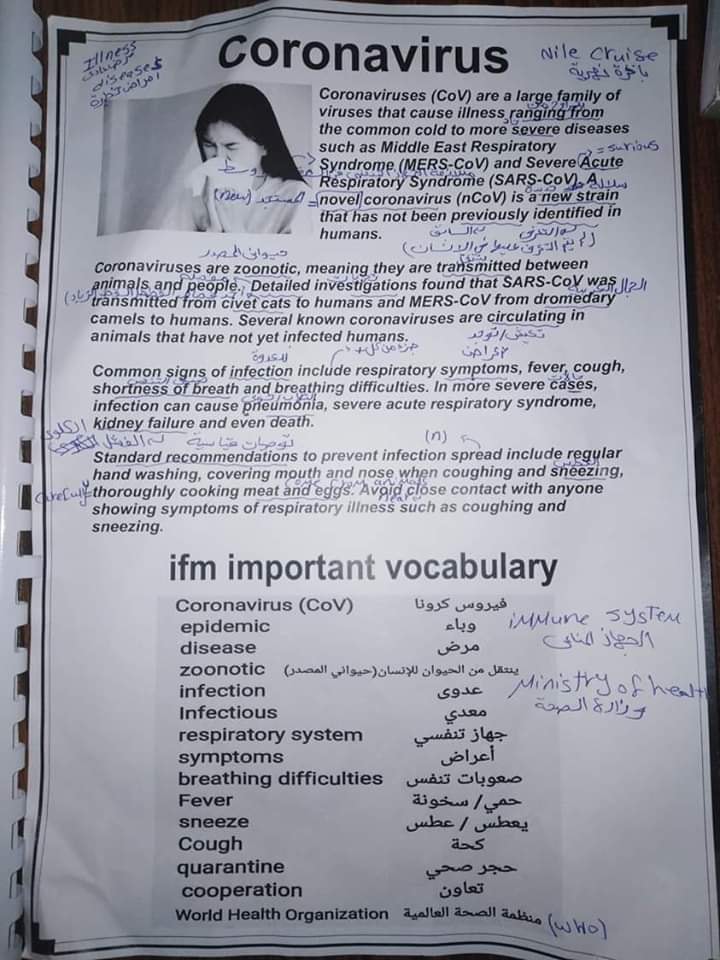 Illness
diseases
Coronavirus
Nile Cruise
باخرة نهرية
Coronaviruses (CoV) are a large family of
viruses that cause illness ranging from
the common cold to more severe diseases
such as Middle East Respiratory
Syndrome (MERS-CoV) and Severe Acute
Respiratory Syndrome (SARS-CoV). A
novel coronavirus (nCoV) is a new strain
that has not been previously identified in
humans.
= surious
(new)
حيواني المصدر
Coronaviruses are zoonotic, meaning they are transmitted between
animals and people. Detailed investigations found that SARS-CoV was
transmitted from civet cats to humans and MERS-CoV from dromedary
camels to humans. Several known coronaviruses are circulating in
animals that have not yet infected humans.
Common signs of infection include respiratory symptoms, fever, cough,
shortness of breath and breathing difficulties. In more severe cases,
infection can cause pneumonia, severe acute respiratory syndrome,
kidney failure and even death.
توصيات قياسية
(n)
Standard recommendations to prevent infection spread include regular
hand washing, covering mouth and nose when coughing and sneezing,
thoroughly cooking meat and eggs. Avoid close contact with anyone
showing symptoms of respiratory illness such as coughing and
sneezing.
carefully
ifm important vocabulary
Coronavirus (CoV) فيروس كرونا
epidemic وباء
immune system
disease مرض
zoonotic ينتقل من الحيوان للإنسان(حيواني المصدر)
infection عدوى
Ministry of health
Infectious معدي
وزارة الصحة
respiratory system جهاز تنفسي
symptoms أعراض
breathing difficulties صعوبات تنفس
Fever حمي/ سخونة
sneeze يعطس / عطس
Cough كحة
quarantine حجر صحي
cooperation تعاون
World Health Organization منظمة الصحة العالمية (WHO)